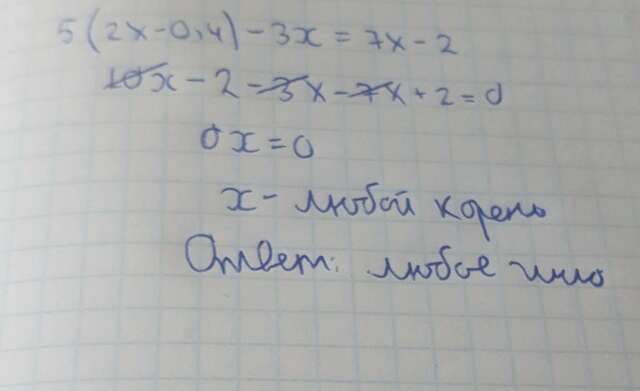 5(2x-0,4)-3x=7x-2
10x-2-3x-7x+2=0
0x=0
x- любой корень
Ответ: любое число